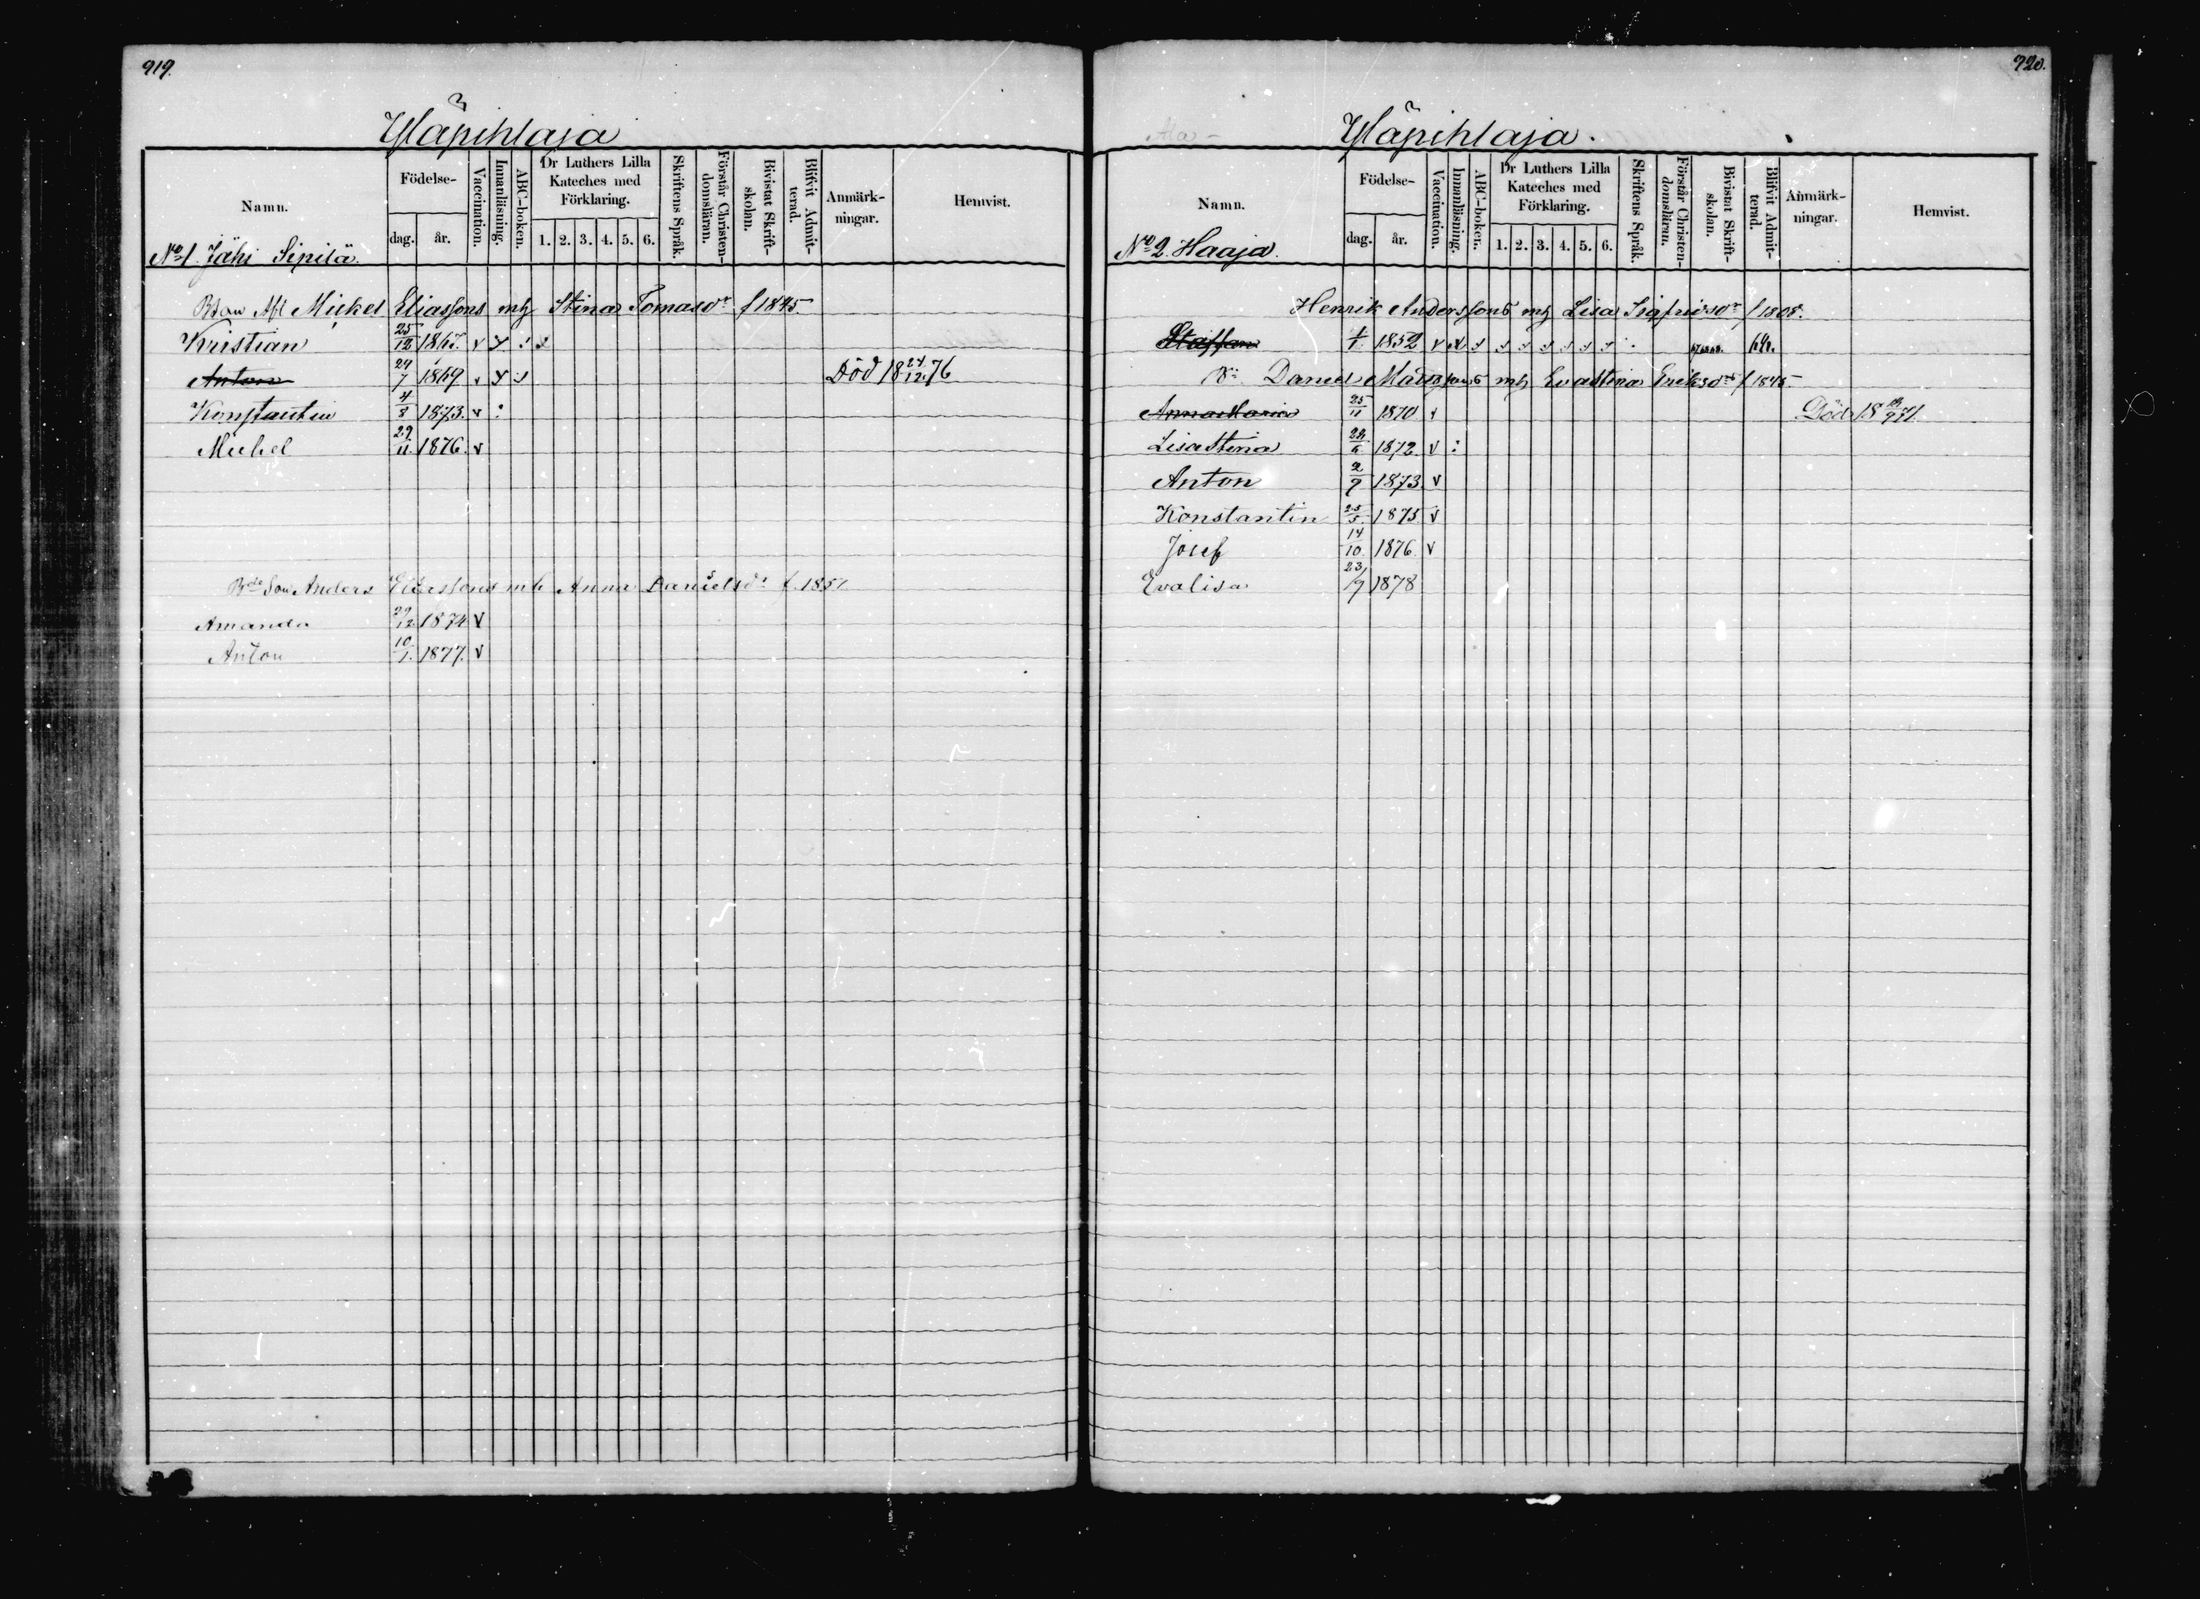 919.
Yläpihlaja
Namn.
Födelse-
dag.
år.
Vaccination.
Innanläsning.
ABC-boken.
Dr Luthers Lilla
Kateches med
Förklaring.
1. 2. 3. 4. 5. 6.
Skriftens Språk.
Förstår Christen-
domsläran.
Bivistat Skrift-
skolan.
Blifvit Admit-
terad.
Anmärk-
ningar.
Hemvist.
No 1. Jähi Sipilä.
Mickel Eliassons mh Stina Tomasdr f 1845.
Kristian 25/12 1867. v
Anton 29/7 1869 v Död 18 24/12 76
Konstantin 4/8 1873. v :
Michel 29/11 1876. v
Son Anders Eliassons mh Anna Danielsdr f. 1851
Amanda 29/12 1874 v
Anton 10/1. 1877. v
920.
Ala-
Yläpihlaja.
Namn.
Födelse-
dag.
år.
Vaccination.
Innanläsning.
ABC-boken.
Dr Luthers Lilla
Kateches med
Förklaring.
1. 2. 3. 4. 5. 6.
Skriftens Språk.
Förstår Christen-
domsläran.
Bivistat Skrift-
skolan.
Blifvit Admit-
terad.
Anmärk-
ningar.
Hemvist.
No 2. Haaja.
Henrik Anderssons mh Lisa Sigfridsdr f 1808.
Staffan 1852 v
Daniel Matssons mh Evastina Eriksdr f 1845
Annamaria 25/11 1870 v Död 18
Lisastina 1872. v :
Anton 2/9 1873. v
Konstantin 1875. v
Josef 14/10. 1876. v
Evalisa 23/9 1878